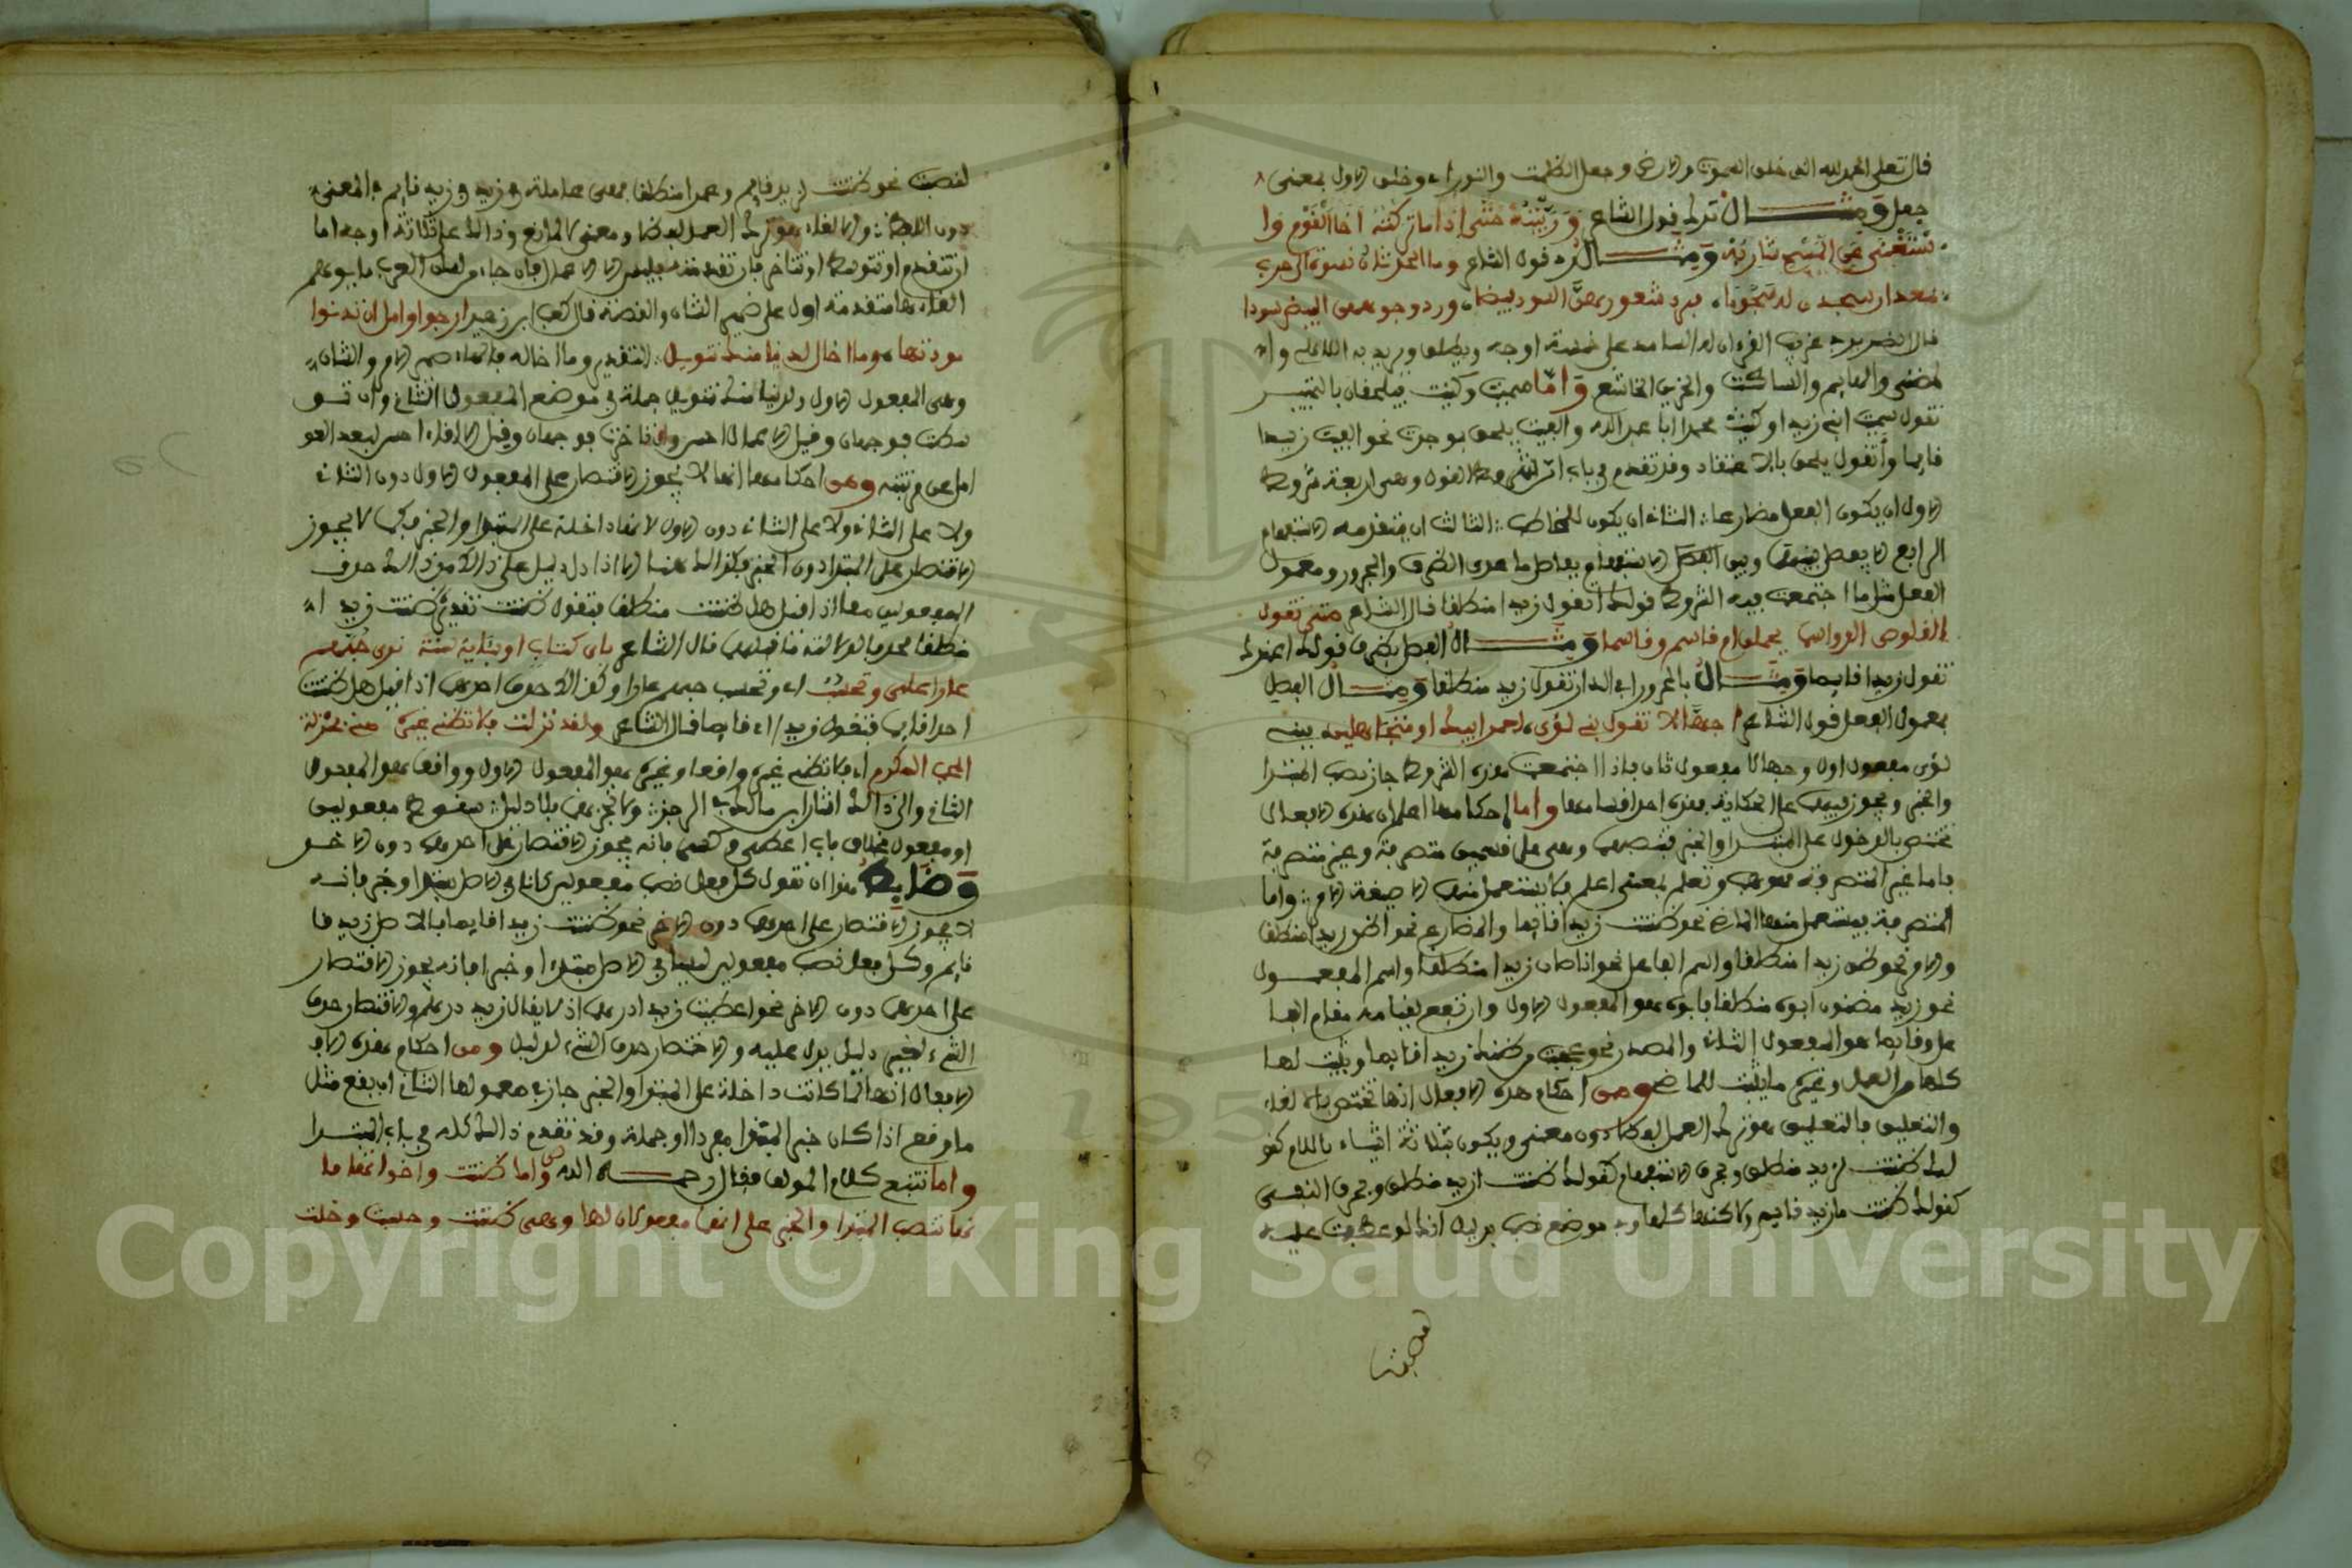 قال تعلى الحمد لله الذي خلق السموت والارض وجعل الظلمت والنور اء وخلق الاول بمعنى
جعل ومثال ترك قول الشاعر وربيته حتى إذا ما تركته اخا القوم وا
ستغنى عن المسح شاربه ومثال رد قول الشاعر رمى الحدثان نسوة ال حرب
بمقدار سمدن له سمودا فرد شعورهن السود بيضا ورد وجوههن البيض سودا
في غريب القرءان ان السامد على خمسة اوجه ويطلق ويريد به اللاهي وا
لمغني والقايم والساكت والحزين الخاشع واما سميت وكنيت فيلحقان بالتمييز
تقول سميت ابني زيدا وكنيت محمدا ابا عبد الله والفيت يلحق بوجدت نحو الفيت زيدا
قايما وأتقول يلحق بالاعتقاد وقد تقدم في باب ان شروط القول وهي اربعة شروط
الاول ان يكون الفعل مضارعا الثاني ان يكون للمخاطب الثالث ان يتقدمه الاستفهام
الرابع الا يفصل بينه وبين الاستفهام بفاصل ما عدى الظرف والمجرور ومعمول
الفعل مثل ما اجتمعت فيه الشروط قولك اتقول زيدا منطلقا قال الشاعر متى تقول
القلوص الرواسم يحملن ام قاسم وقاسما ومثال الفصل بظرف قولك اعندك
تقول زيدا قايما ومثال بالمجرور افي الدار تقول زيدا منطلقا ومثال الفصل
بمعمول الفعل قول الشاعر اجهالا تقول بني لؤي لعمر ابيك ام متجاهلينا فبني
لؤي مفعول اول وجهالا مفعول ثان فاذا اجتمعت هذه الشروط جاز نصب المبتدا
والخبر ويجوز فيهما الحكاية بعده واما احكامها اعلم ان هذه الافعال
تختص بالدخول على المبتدا والخبر فتنصبهما وهي على قسمين متصرفة وغير متصرفة
فاما غير المتصرفة فهي هب وتعلم بمعنى اعلم فلا يستعمل منها الا صيغة الامر واما
المتصرفة فيستعمل منها الماضي نحو ظننت زيدا قايما والمضارع نحو اظن زيدا منطلقا
والامر نحو ظن زيدا منطلقا واسم الفاعل نحو انا ظان زيدا منطلقا واسم المفعول
نحو زيد مظنون ابوه منطلقا فابوه هو المفعول الاول وارتفع لقيامه مقام الفا
عل وقايما هو المفعول الثاني والمصدر نحو عجبت من ظنك زيدا قايما ويثبت لها
كلها من العمل وغيره ما يثبت للماضي ومن احكام هذه الافعال انها تختص بالالغاء
والتعليق فالتعليق هو ترك العمل لفظا دون معنى ويكون بثلاثة اشياء باللام كقو
لك ظننت لزيد منطلق وبحرف الاستفهام كقولك ظننت ازيد منطلق وبحرف النفي
كقولك ظننت ما زيد قايم ولاكنها كلها في موضع نصب بدليل انك لو عطفت عليه
لنصبت
لنصبت نحو ظننت لزيد قايم وعمرا منطلقا فهي عاملة في زيد وزيد قايم في المعنى
دون اللفظ والالغاء هو ترك العمل لفظا ومعنى لا لمانع وذالك على ثلاثة اوجه اما
ان تتقدم او تتوسط او تتاخر فان تقدمت فليس الا الاعمال فان جاء من لسان العرب ما يوهم
الغاءها متقدمة اول على ضمير الشان والقصة قال كعب ابن زهير ارجوا وامل ان تدنوا
مودتها وما اخال لدينا منك تنويل التقدير وما اخاله فالهاء ضمير الامر والشان
وهي المفعول الاول ولدينا منك تنويل جملة في موضع المفعول الثاني وان تو
سطت فوجهان وقيل الاعمال احسن وان تاخرت فوجهان وقيل الالغاء احسن لبعد العو
امل عن مرتبته ومن احكامها انها لا يجوز الاقتصار على المفعول الاول دون الثاني
ولا على الثاني دون الاول لانها داخلة على المبتدا والخبر فكما لا يجوز
الاقتصار على المبتدا دون الخبر فكذالك هنا الا اذا دل دليل على ذالك من ذالك حذف
المفعولين معا اذا قيل هل ظننت زيدا منطلقا فتقول ظننت تقديره ظننت زيدا
منطلقا لدلالة ما قبله قال الشاعر باي كتاب او باية سنة ترى حبهم
عارا علي وتحسب اي وتحسب حبهم عارا وكذالك حذف احدهما اذا قيل هل ظننت
احدا قايما فتقول زيدا اي قايما قال الشاعر ولقد نزلت فلا تظني غيره مني بمنزلة
المحب المكرم اي فلا تظني غيره واقعا وغيره هو المفعول الاول وواقعا هو المفعول
الثاني والى ذالك اشار ابن مالك في الرجز ولا تجز هنا بلا دليل سقوط مفعولين
او مفعول بخلاف باب اعطى وكسى فانه يجوز الاقتصار على احدهما دون الاخر
وضابط هذا ان تقول كل فعل نصب مفعولين كانا في الاصل مبتدا وخبر فانه
لا يجوز الاقتصار على احدهما دون الاخر نحو ظننت زيدا قايما فالاصل زيد قا
قايم وكل فعل نصب مفعولين ليسا في الاصل مبتدا وخبرا فانه يجوز الاقتصار
على احدهما دون الاخر نحو اعطيت زيدا درهما اذ لا يقال زيد درهم والاقتصار حذف
الشيء لغير دليل يدل عليه والاختصار حذف الشيء لدليل ومن احكام هذه الا
الافعال انها لما كانت داخلة على المبتدا والخبر جاز في معمولها الثاني ان يقع مثل
ما وقع اذا كان خبر المبتدا مفردا او جملة وقد تقدم ذالك كله في باب المبتدا
واما تتبع كلام المولف فقال رحمه الله واما ظننت واخواتها فا
نها تنصب المبتدا والخبر على انهما مفعولان لها وهي ظننت وحسبت وخلت
Copyright © King Saud University
195